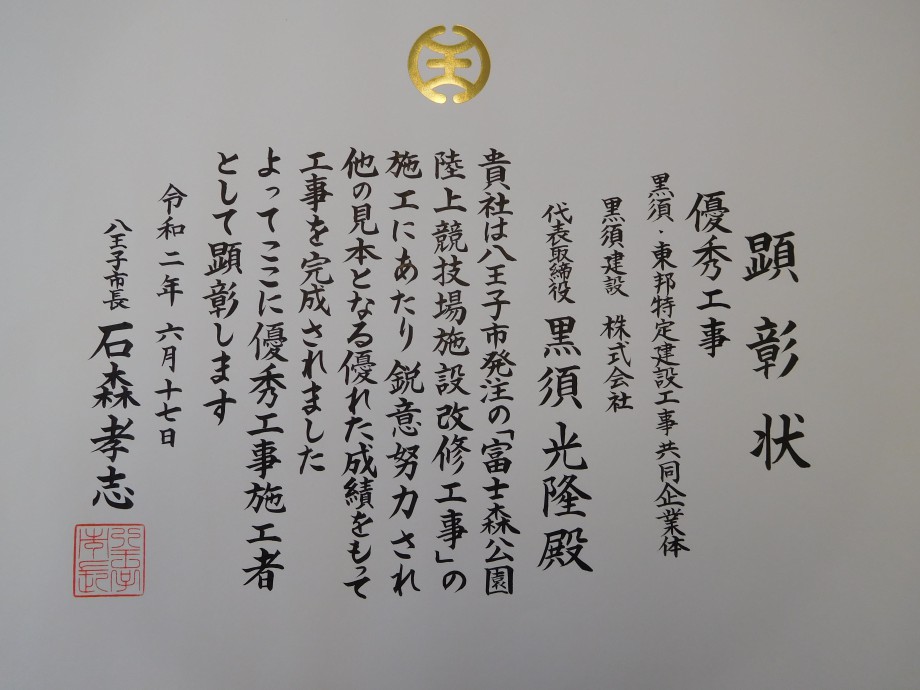 顕彰状
優秀工事
黒須・東邦特定建設工事共同企業体
黒須建設 株式会社
代表取締役 黒須光隆殿
貴社は八王子市発注の「富士森公園
陸上競技場施設改修工事」の
施工にあたり鋭意努力され
他の見本となる優れた成績をもって
工事を完成されました
よってここに優秀工事施工者
として顕彰します
令和二年 六月十七日
八王子市長 石森孝志